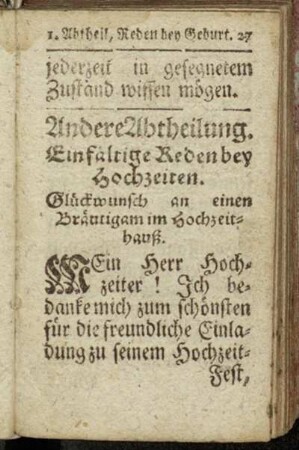 1. Abtheil, Reden bey Geburt. 27
jederzeit in gesegnetem
Zustand wissen mögen.
Andere Abtheilung.
Einfältige Reden bey
Hochzeiten.
Glückwunsch an einen
Bräutigam im Hochzeit-
hauß.
MEin Herr Hoch-
zeiter! Ich be-
danke mich zum schönsten
für die freundliche Einla-
dung zu seinem Hochzeit-
Fest,